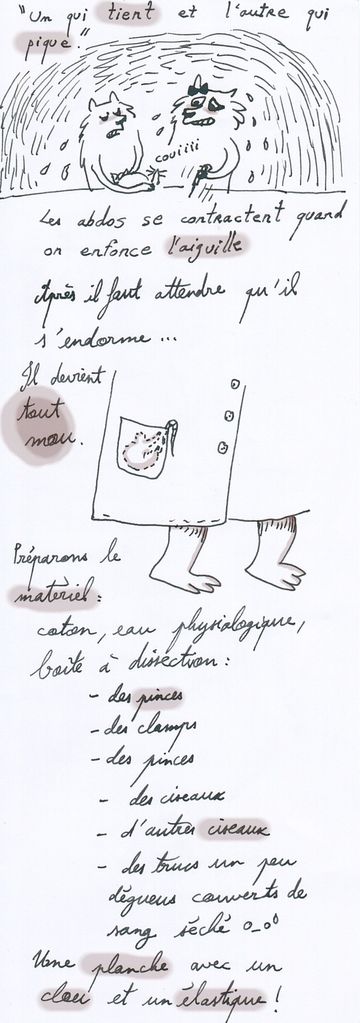 "Un qui tient et l'autre qui
pique."
couiiii
Les abdos se contractent quand
on enfonce l'aiguille
Après il faut attendre qu'il
s'endorme ...
Il devient
tout
mou.
Préparons le
matériel :
coton, eau physiologique,
boîte à dissection :
- des pinces
- des clamps
- des pinces
- des ciseaux
- d'autres ciseaux
- des trucs un peu
dégueus couverts de
sang séché o_o
Une planche avec un
clou et un élastique !